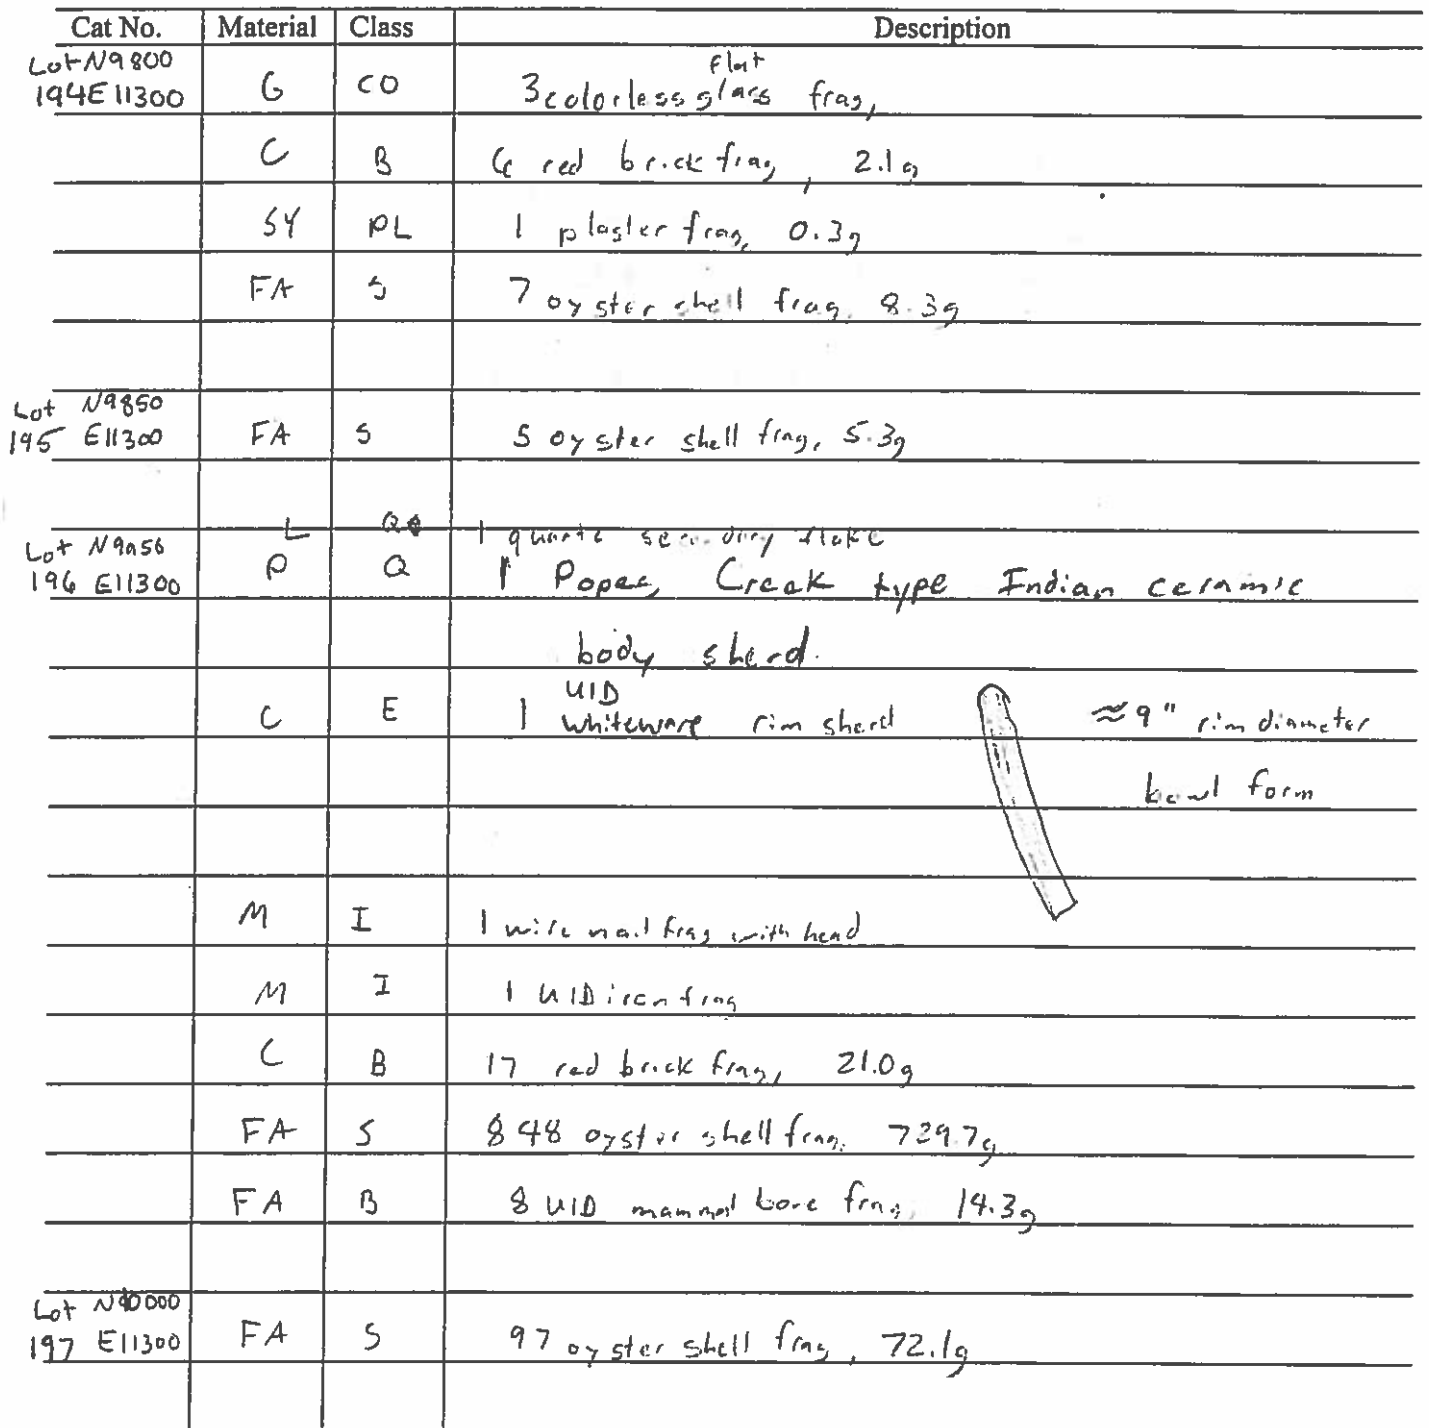 Cat No. Material Class Description
Lot N9800
194 E11300 G CO 3 colorless flat glass frag,
C B 6 red brick frag, 2.1g
SY PL 1 plaster frag, 0.3g
FA S 7 oyster shell frag, 8.3g
Lot N9850
195 E11300 FA S 5 oyster shell frag, 5.3g
L Q 1 quartz secondary flake
Lot N9956
196 E11300 P Q 1 Popes Creek type Indian ceramic
body sherd.
UID
C E 1 whiteware rim sherd ≈ 9" rim diameter
bowl form
M I 1 wire nail frag with head
M I 1 UID iron frag
C B 17 red brick frag, 21.0g
FA S 848 oyster shell frag, 729.7g
FA B 8 UID mammal bone frag, 14.3g
Lot N10000
197 E11300 FA S 97 oyster shell frag, 72.1g